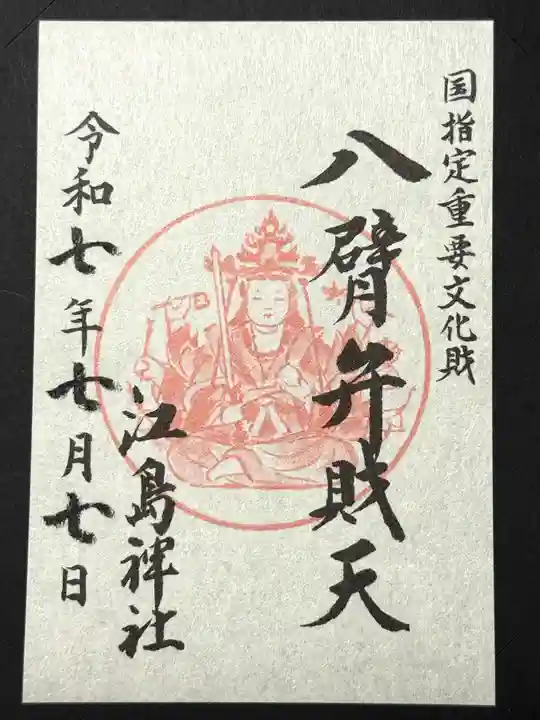 国指定重要文化財
八臂弁財天
江島神社
令和七年七月七日